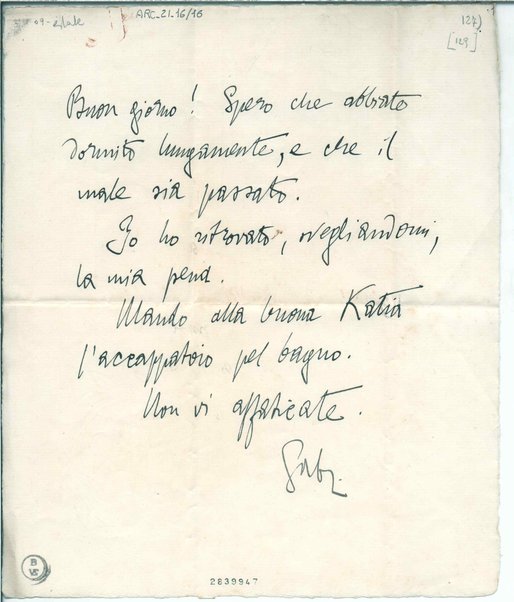 09-estate
ARC-21-16/16
127)
[129]
Buon giorno! Spero che abbiate
dormito lungamente, e che il
male sia passato.
Io ho ritrovato, svegliandomi,
la mia pena.
Mando alla buona Katia
l'accappatoio pel bagno.
Non vi affaticate.
Gabr.
2839947